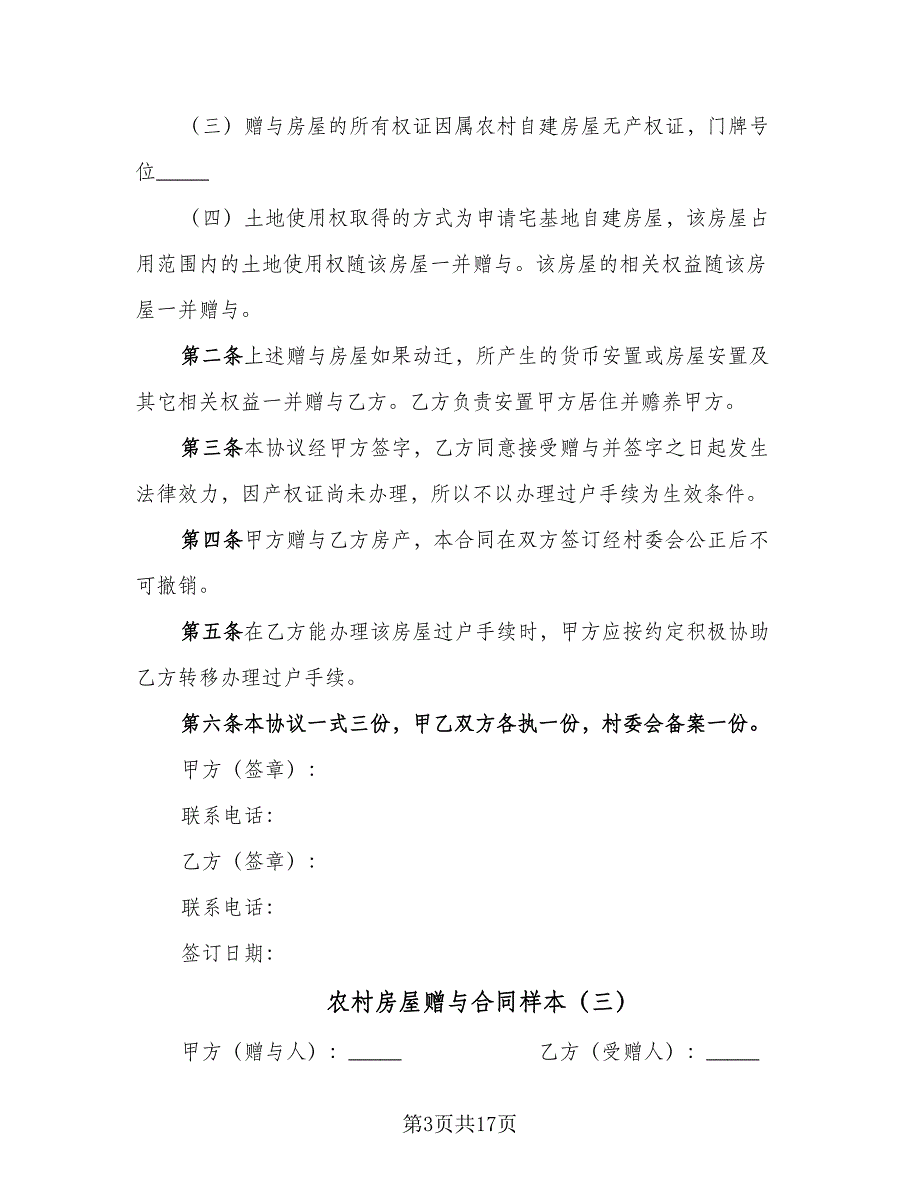 （三）赠与房屋的所有权证因属农村自建房屋无产权证，门牌号
位_____
（四）土地使用权取得的方式为申请宅基地自建房屋，该房屋占
用范围内的土地使用权随该房屋一并赠与。该房屋的相关权益随该房
屋一并赠与。
第二条上述赠与房屋如果动迁，所产生的货币安置或房屋安置及
其它相关权益一并赠与乙方。乙方负责安置甲方居住并赡养甲方。
第三条本协议经甲方签字，乙方同意接受赠与并签字之日起发生
法律效力，因产权证尚未办理，所以不以办理过户手续为生效条件。
第四条甲方赠与乙方房产，本合同在双方签订经村委会公正后不
可撤销。
第五条在乙方能办理该房屋过户手续时，甲方应按约定积极协助
乙方转移办理过户手续。
第六条本协议一式三份，甲乙双方各执一份，村委会备案一份。
甲方（签章）：
联系电话：
乙方（签章）：
联系电话：
签订日期：
农村房屋赠与合同样本（三）
甲方（赠与人）：_____ 乙方（受赠人）：_____
第3页共17页